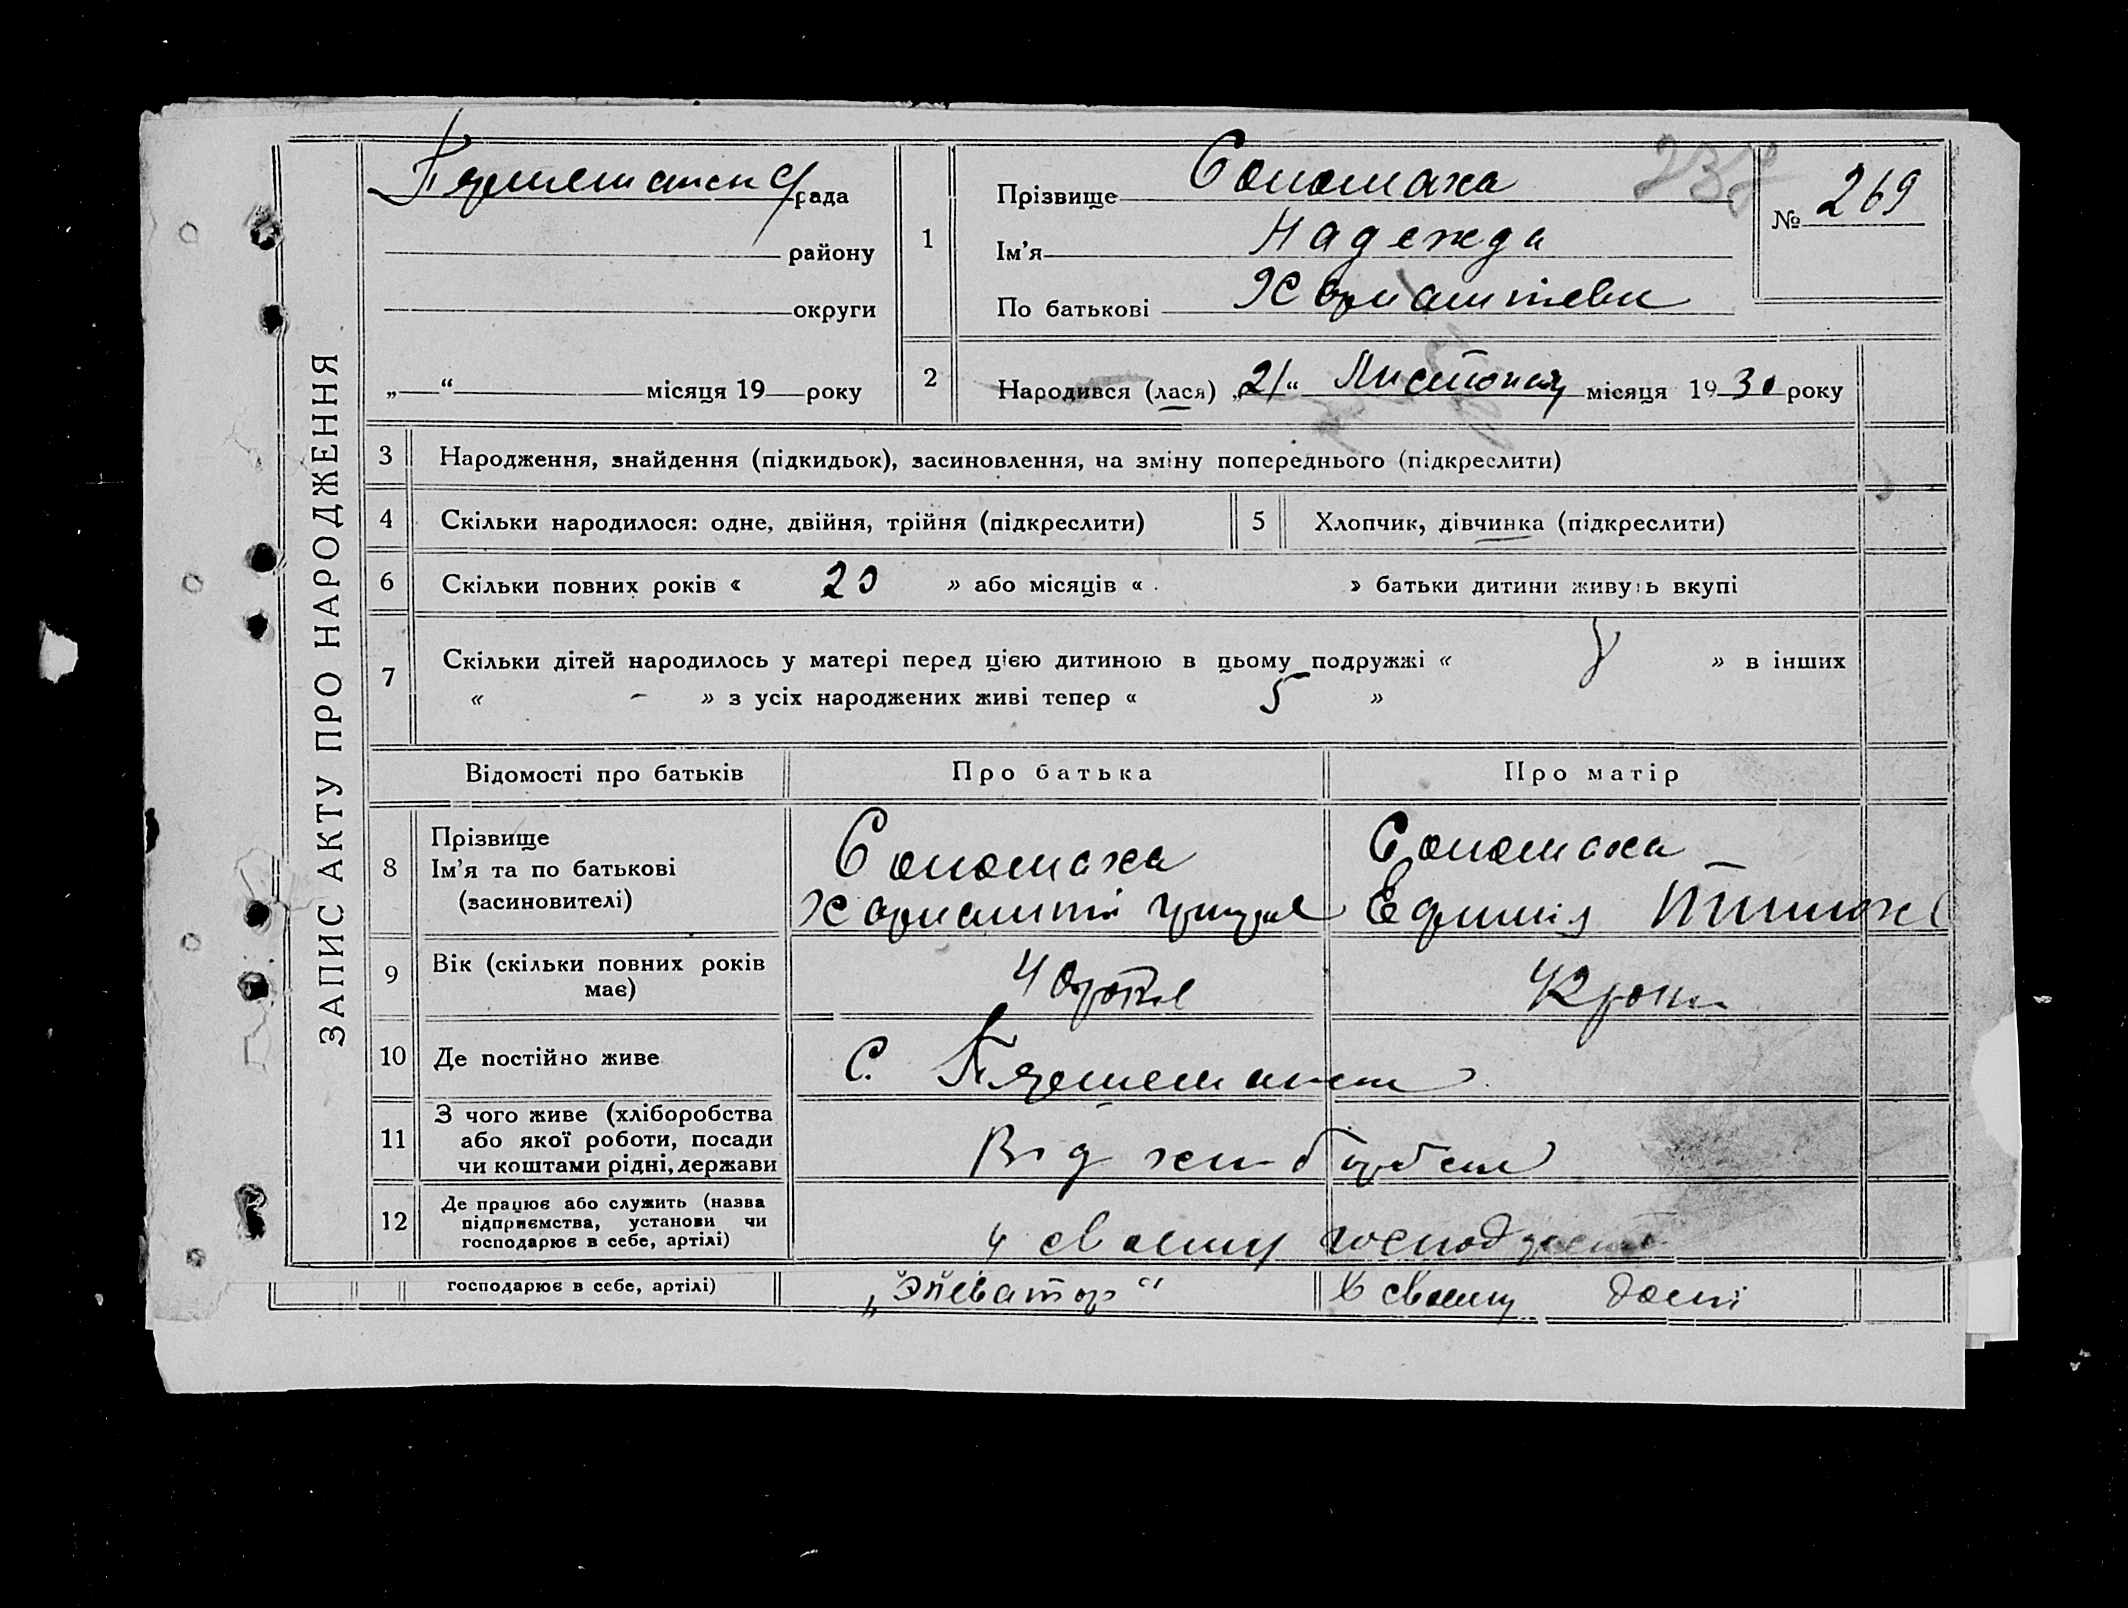 ЗАПИС АКТУ ПРО НАРОДЖЕННЯ
рада
району
округи
„ “ місяця 19 року
1
Прізвище Соломаха
Ім’я Надежда
По батькові
№ 269
2
Народився (лася) „21“ Листопад місяця 1930 року
3
Народження, знайдення (підкидьок), засиновлення, на зміну попереднього (підкреслити)
4
Скільки народилося: одне, двійня, трійня (підкреслити)
5
Хлопчик, дівчинка (підкреслити)
6
Скільки повних років « 20 » або місяців « » батьки дитини живуть вкупі
7
Скільки дітей народилось у матері перед цією дитиною в цьому подружжі « » в інших
« – » з усіх народжених живі тепер « 5 »
Відомості про батьків
Про батька
Про матір
8
Прізвище
Ім’я та по батькові
(засиновителі)
Соломаха
Соломаха
9
Вік (скільки повних років
має)
40
42 роки
10
Де постійно живе
С.
11
З чого живе (хліборобства
або якої роботи, посади
чи коштами рідні, держави
Від
12
Де працює або служить (назва
підприємства, установи чи
господарює в себе, артілі)
у своему
господарює в себе, артілі)
„Элеватор“
В своему домі